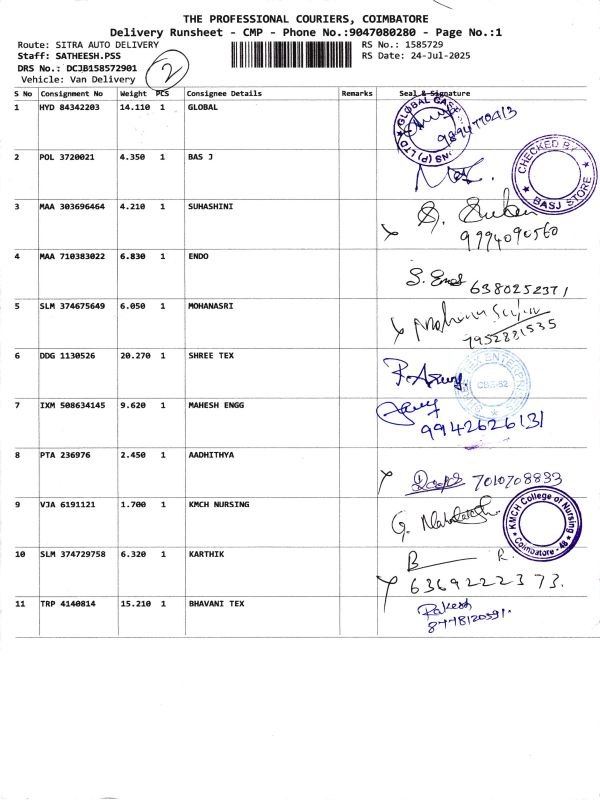 THE PROFESSIONAL COURIERS, COIMBATORE
Delivery Runsheet - CMP - Phone No.:9047080280 - Page No.:1
Route: SITRA AUTO DELIVERY RS No.: 1585729
Staff: SATHEESH.PSS RS Date: 24-Jul-2025
DRS No.: DCJB158572901
Vehicle: Van Delivery 2
S No Consignment No Weight PCS Consignee Details Remarks Seal & Signature
1 HYD 84342203 14.110 1 GLOBAL
9894770413
2 POL 3720021 4.350 1 BAS J
CHECKED BY
BASJ STORE
3 MAA 303696464 4.210 1 SUHASHINI
9994090560
4 MAA 710383022 6.830 1 ENDO
6380252371
5 SLM 374675649 6.050 1 MOHANASRI
7952881535
6 DDG 1130526 20.270 1 SHREE TEX
7 IXM 508634145 9.620 1 MAHESH ENGG
9942626131
8 PTA 236976 2.450 1 AADHITHYA
7010708883
9 VJA 6191121 1.700 1 KMCH NURSING
KMCH College of Nursing
Coimbatore - 48
10 SLM 374729758 6.320 1 KARTHIK
6369222373.
11 TRP 4140814 15.210 1 BHAVANI TEX
Rakesh